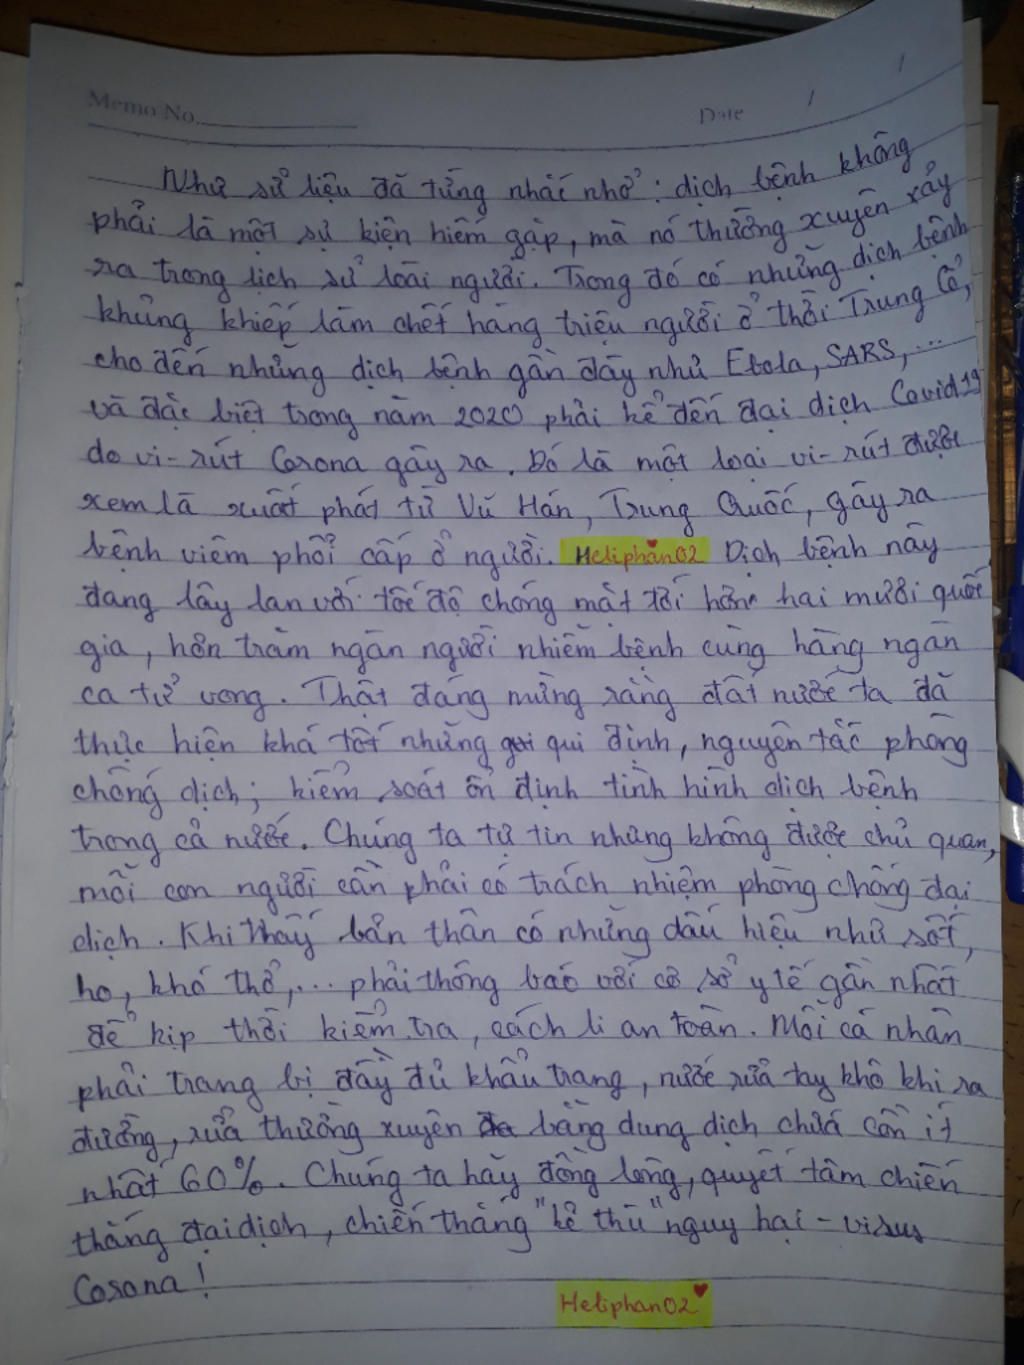 Memo No.
Date / /
Như sử liệu đã từng nhắc nhở: dịch bệnh không
phải là một sự kiện hiếm gặp, mà nó thường xuyên xảy
ra trong lịch sử loài người. Trong đó có những dịch bệnh
khủng khiếp làm chết hàng triệu người ở thời Trung Cổ,
cho đến những dịch bệnh gần đây như Ebola, SARS,...
và đặc biệt trong năm 2020 phải kể đến đại dịch Covid19
do vi-rút Corona gây ra. Đó là một loại vi-rút được
xem là xuất phát từ Vũ Hán, Trung Quốc, gây ra
bệnh viêm phổi cấp ở người. Heliphan02 Dịch bệnh này
đang lây lan với tốc độ chóng mặt tới hơn hai mười quốc
gia, hơn trăm ngàn người nhiễm bệnh cùng hàng ngàn
ca tử vong. Thật đáng mừng rằng đất nước ta đã
thực hiện khá tốt những qui định, nguyên tắc phòng
chống dịch; kiểm soát ổn định tình hình dịch bệnh
trong cả nước. Chúng ta tự tin nhưng không được chủ quan,
mỗi con người cần phải có trách nhiệm phòng chống đại
dịch. Khi thấy bản thân có những dấu hiệu như sốt,
ho, khó thở,... phải thông báo với cơ sở y tế gần nhất
để kịp thời kiểm tra, cách li an toàn. Mỗi cá nhân
phải trang bị đầy đủ khẩu trang, nước rửa tay khô khi ra
đường, rửa thường xuyên bằng dung dịch chứa cồn ít
nhất 60%. Chúng ta hãy đồng lòng, quyết tâm chiến
thắng đại dịch, chiến thắng "kẻ thù" nguy hại - virus
Corona!
Heliphan02